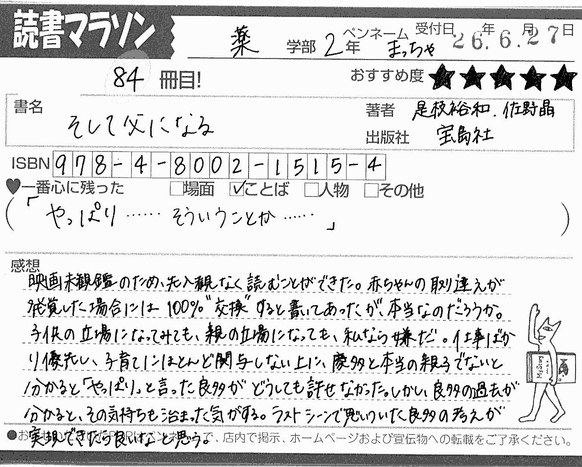 読書マラソン
薬 学部 2年 ペンネーム まっちゃ 受付日 26年6月27日
84冊目! おすすめ度 ★★★★★
書名 そして父になる
著者 是枝裕和、佐野晶
出版社 宝島社
ISBN 978-4-8002-1515-4
♥一番心に残った □場面 ☑ことば □人物 □その他
(「やっぱり……そういうことか……」)
感想
映画未観鑑のため、先入観なく読むことができた。赤ちゃんの取り違えが
発覚した場合には100%"交換"すると書いてあったが、本当なのだろうか。
子供の立場になってみても、親の立場になっても、私なら嫌だ。仕事ばか
り優先し、子育てにほとんど関与しない上に、慶多と本当の親子でないと
分かると「やっぱり」と言った良多がどうしても許せなかった。しかし、良多の過去が
分かると、その気持ちも治まった気がする。ラストシーンで思いついた良多の考えが
実現できたら良いなと思う。
で、店内で掲示、ホームページおよび宣伝物への転載をご了承ください。